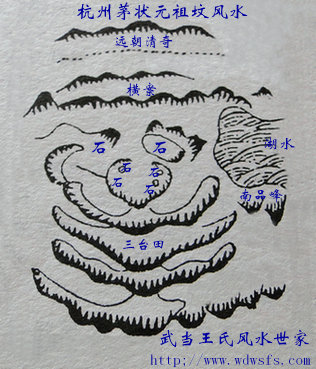 杭州茅状元祖坟风水
远朝清奇
横案
石
石
石
石
石
石
湖水
南品峰
三台田
武当王氏风水世家
http;//www.wdwsfs.com